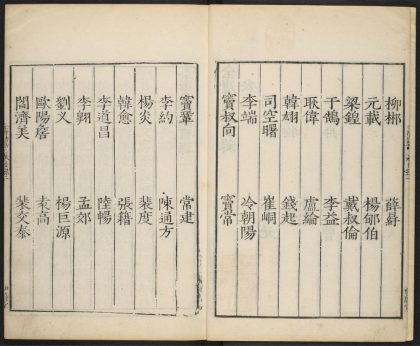 柳郴 薛㝷
元載 楊郇伯
梁鍠 戴叔倫
于鵠 李益
耿偉 盧綸
韓翃 錢起
司空曙 崔峒
李端 冷朝陽
竇叔向 竇常
竇鞏 常建
李約 陳通方
楊炎 裴度
韓愈 張籍
李道昌 陸暢
李翺 孟郊
劉乂 楊巨源
歐陽詹 袁高
閻濟美 裴交泰